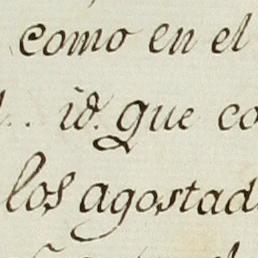 como en el
id. que co
los agostad